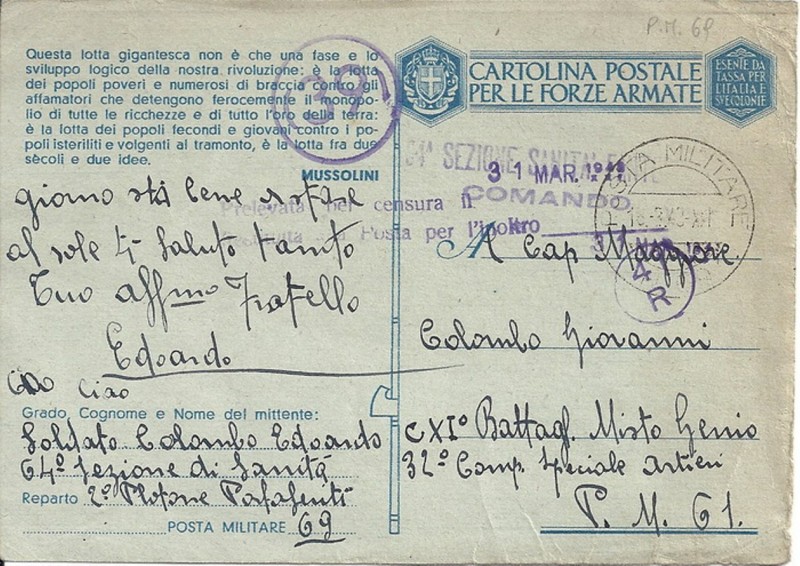 P.M. 69
Questa lotta gigantesca non è che una fase e lo
sviluppo logico della nostra rivoluzione: è la lotta
dei popoli poveri e numerosi di braccia contro gli
affamatori che detengono ferocemente il monopo-
lio di tutte le ricchezze e di tutto l'oro della terra:
è la lotta dei popoli fecondi e giovani contro i po-
poli isteriliti e volgenti al tramonto, è la lotta fra due
sècoli e due idee.
MUSSOLINI
39
CARTOLINA POSTALE
PER LE FORZE ARMATE
ESENTE DA
TASSA PER
L'ITALIA E
SVE COLONIE
SEZIONE SANITA
31 MAR. 194
COMANDO
POSTA MILITARE
Prelevata per censura il
Posta per l'inoltro
4
R
giorno stà bene
al sole Saluto tanto
Tuo affmo Fratello
Edoardo
Ciao Ciao
Grado, Cognome e Nome del mittente:
Soldato Colombo Edoardo
64º Sezione di Sanità
Reparto 2º Plotone Portaferiti
POSTA MILITARE 69
Al Cap Maggiore
Colombo Giovanni
CXIº Battagl. Misto Genio
32º Comp. Speciale Artieri
P. M. 61.